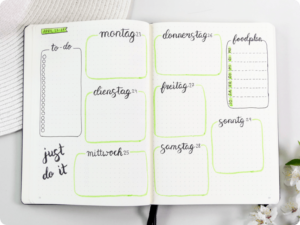 to-do
montag
dienstag
mittwoch
just
do it
donnerstag
freitag
samstag
sonntag